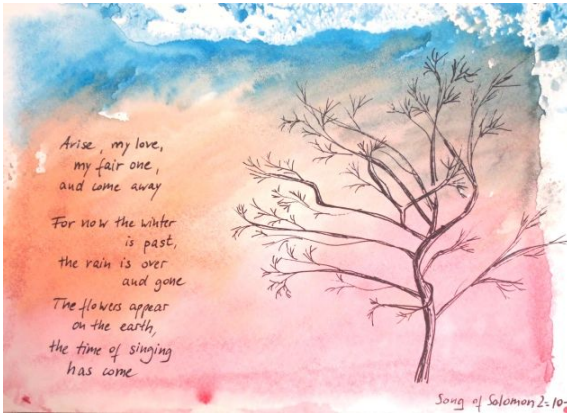 Arise, my love,
my fair one,
and come away
For now the winter
is past,
the rain is over
and gone
The flowers appear
on the earth,
the time of singing
has come
Song of Solomon 2:10-